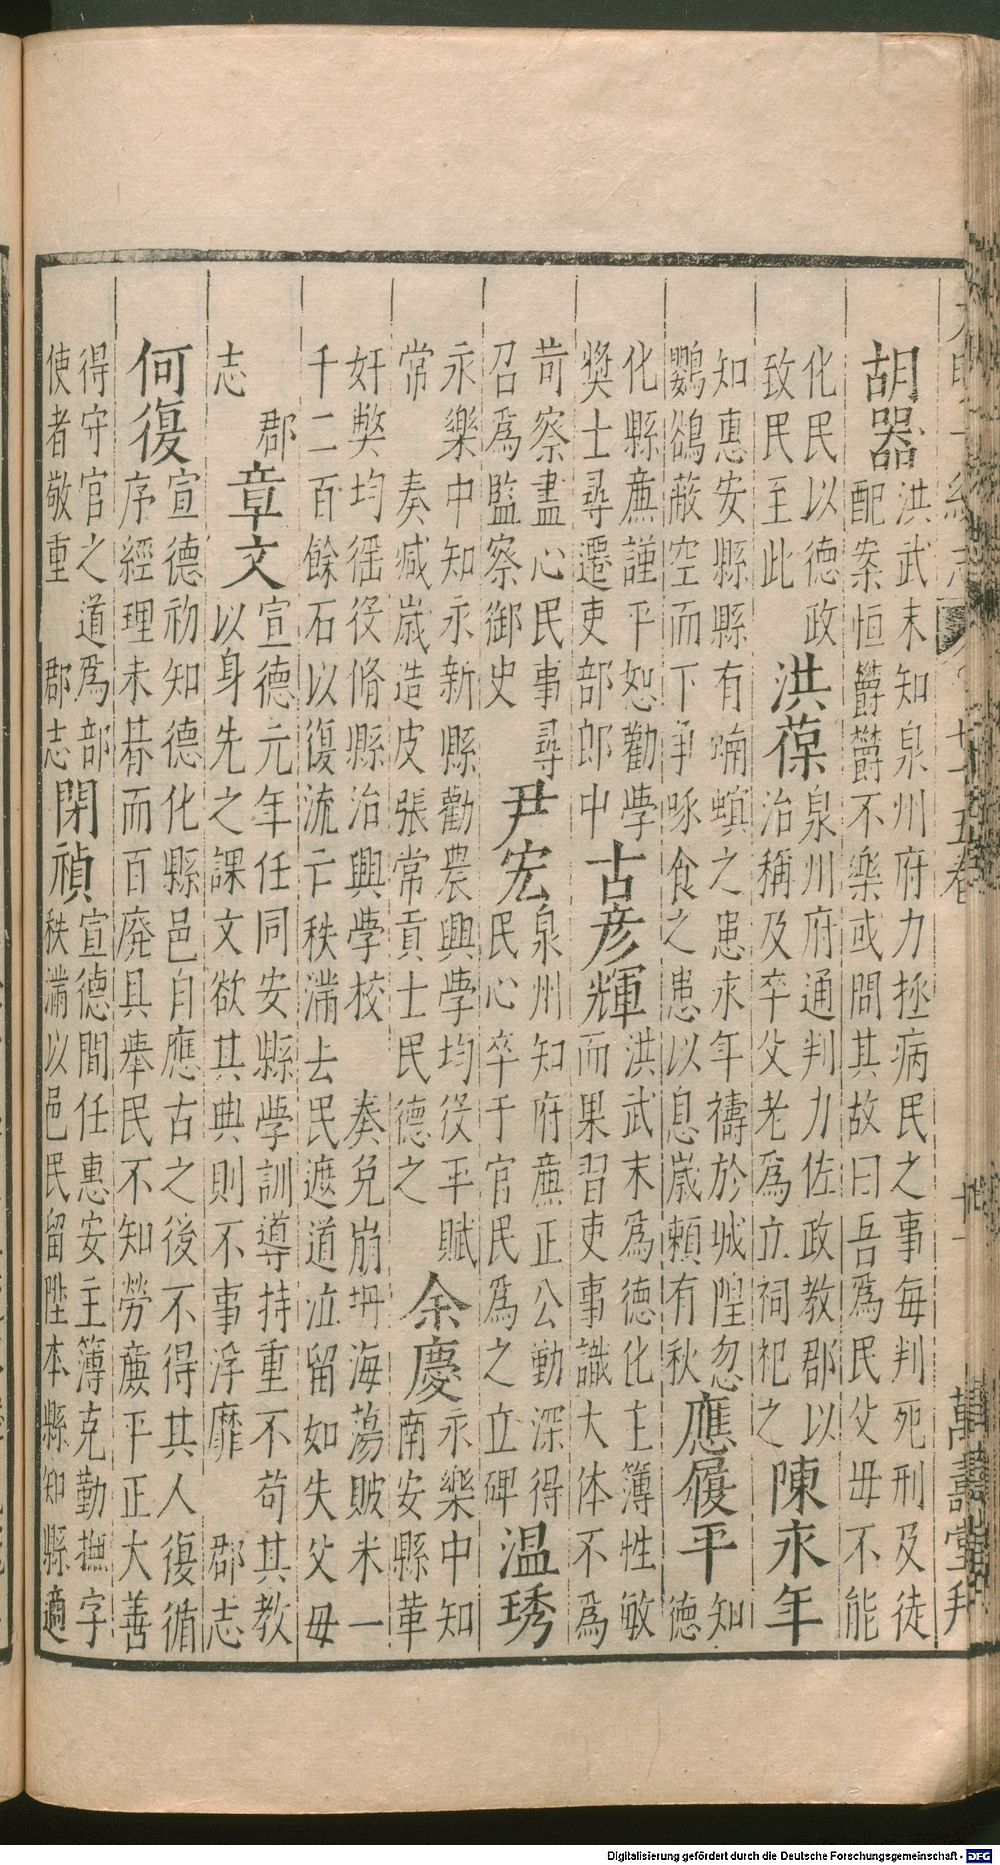 大明一統志 七十五卷 十一 萬壽堂刋
胡器
洪武末知泉州府力拯病民之事每判死刑及徒
配案恒欝欝不樂或問其故曰吾爲民父毋不能
化民以德政
致民至此
洪葆
泉州府通判力佐政教郡以
治稱及卒父老爲立祠祀之
陳永年
知惠安縣縣有蝻螟之患永年禱於城隍忽
鸚鵒蔽空而下爭啄食之患以息歲頼有秋
應履平
知
德
化縣亷謹平恕勸學
獎士尋遷吏部郎中
古彦輝
洪武末爲德化主簿性敏
而果習吏事識大体不爲
苛察盡心民事尋
召爲監察御史
尹宏
泉州知府亷正公勤深得
民心卒于官民爲之立碑
温琇
永樂中知永新縣勸農興學均役平賦
常 奏减歲造皮張常貢士民德之
余慶
永樂中知
南安縣革
奸弊均徭役脩縣治興學校 奏免崩坍海蕩陂米一
千二百餘石以復流亡秩滿去民遮道泣留如失父毋
郡
志
章文
宣德元年任同安縣學訓導持重不苟其教
以身先之課文欲其典則不事浮靡 郡志
何復
宣德初知德化縣邑自應古之後不得其人復循
序經理未朞而百廢具舉民不知勞亷平正大善
得守官之道爲部
使者敬重 郡志
閉禎
宣德間任惠安主簿克勤撫字
秩滿以邑民留陞本縣知縣適
Digitalisierung gefördert durch die Deutsche Forschungsgemeinschaft - DFG